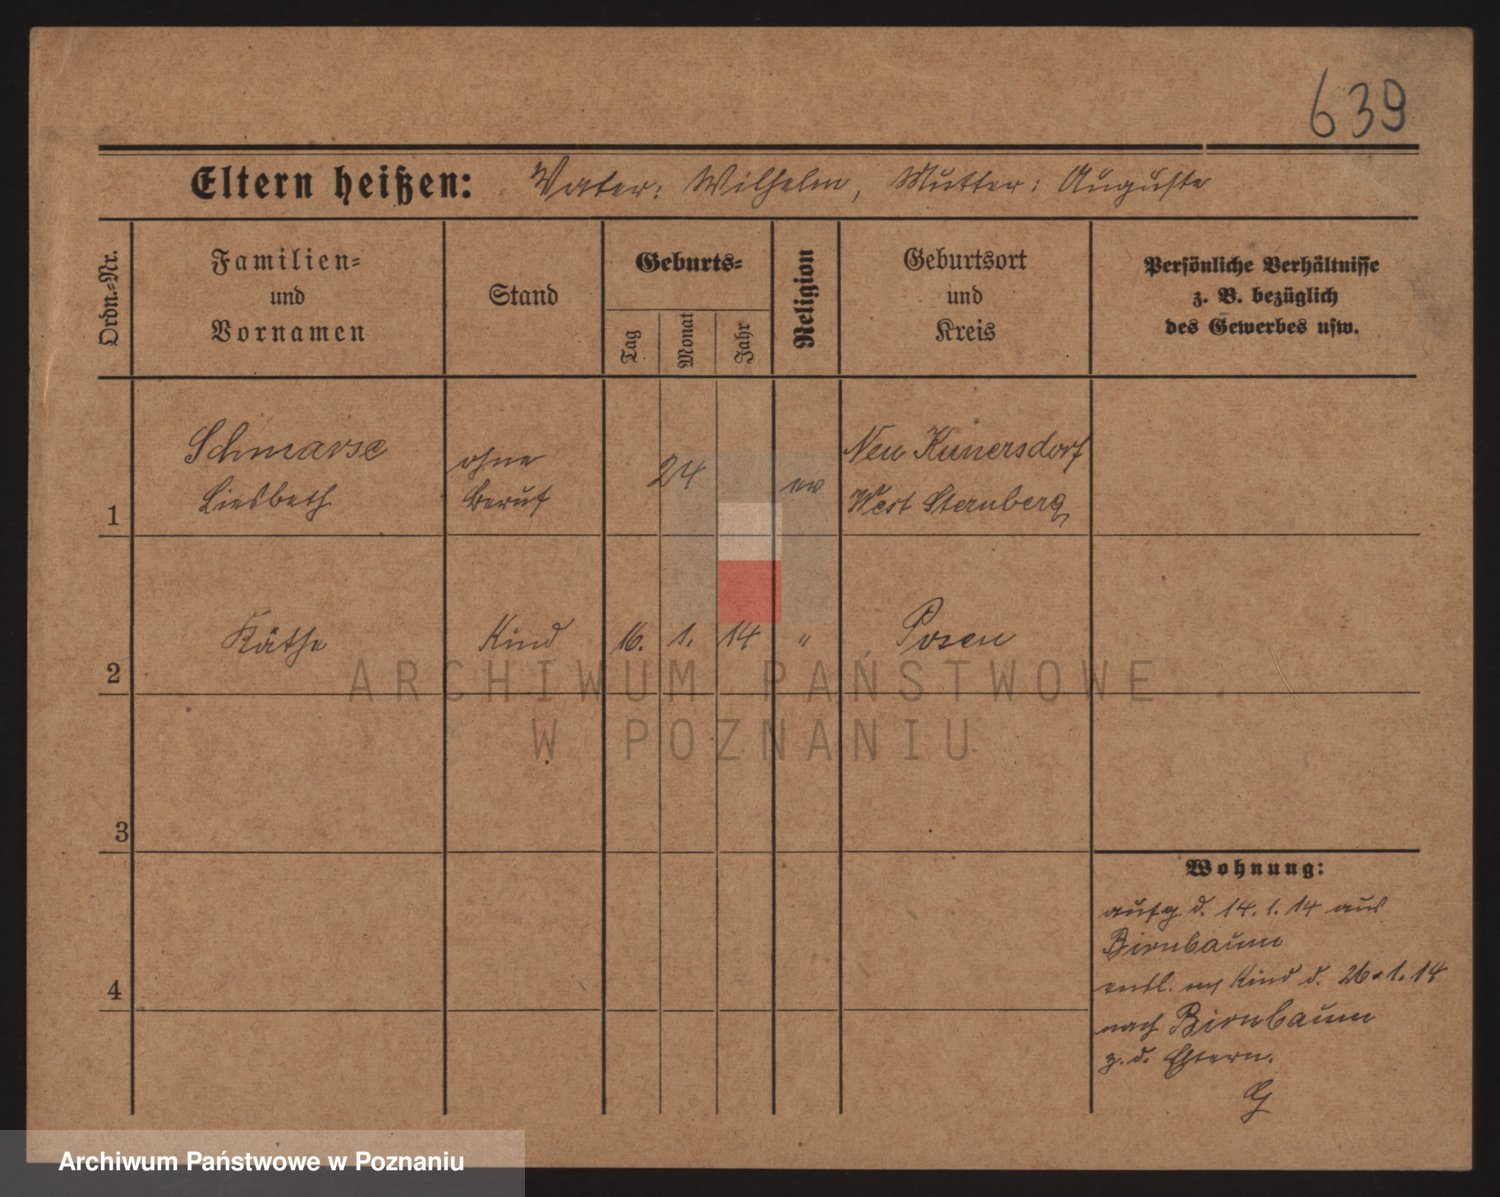 639
Eltern heißen: Vater: Wilhelm, Mutter: Auguste
Ordn.-Nr.
Familien=
und
Vornamen
Stand
Geburts=
Tag
Monat
Jahr
Religion
Geburtsort
und
Kreis
Persönliche Verhältnisse
z. B. bezüglich
des Gewerbes usw.
1
Schmarse
Liesbeth
ohne
Beruf
24
ev
Neu Kunersdorf
West Sternberg
2
Käthe
Kind
16.
1.
14
"
Posen
3
4
Wohnung:
aufg d. 14.1.14 aus
Birnbaum
entl. Kind d. 26.1.14
nach Birnbaum
z. d. Eltern.
G
ARCHIWUM PAŃSTWOWE
W POZNANIU
Archiwum Państwowe w Poznaniu